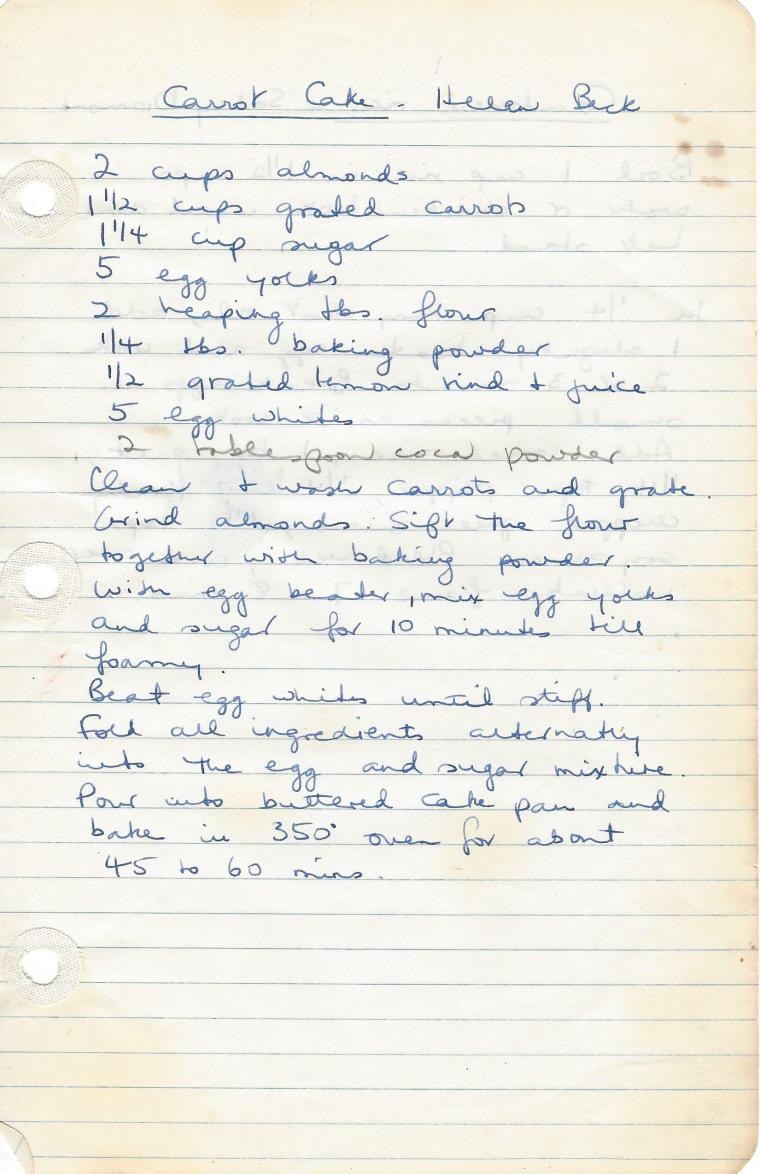 Carrot Cake. Helen Beck
2 cups almonds
1 1/2 cups grated carrots
1 1/4 cup sugar
5 egg yolks
2 heaping tbs. flour
1/4 tbs. baking powder
1/2 grated lemon rind + juice
5 egg whites
2 tablespoon coca powder
Clean + wash carrots and grate.
Grind almonds. Sift the flour
together with baking powder.
With egg beater, mix egg yolks
and sugar for 10 minutes till
foamy.
Beat egg whites until stiff.
Fold all ingredients alternatly
into the egg and sugar mixture.
Pour into buttered cake pan and
bake in 350° oven for about
45 to 60 mins.